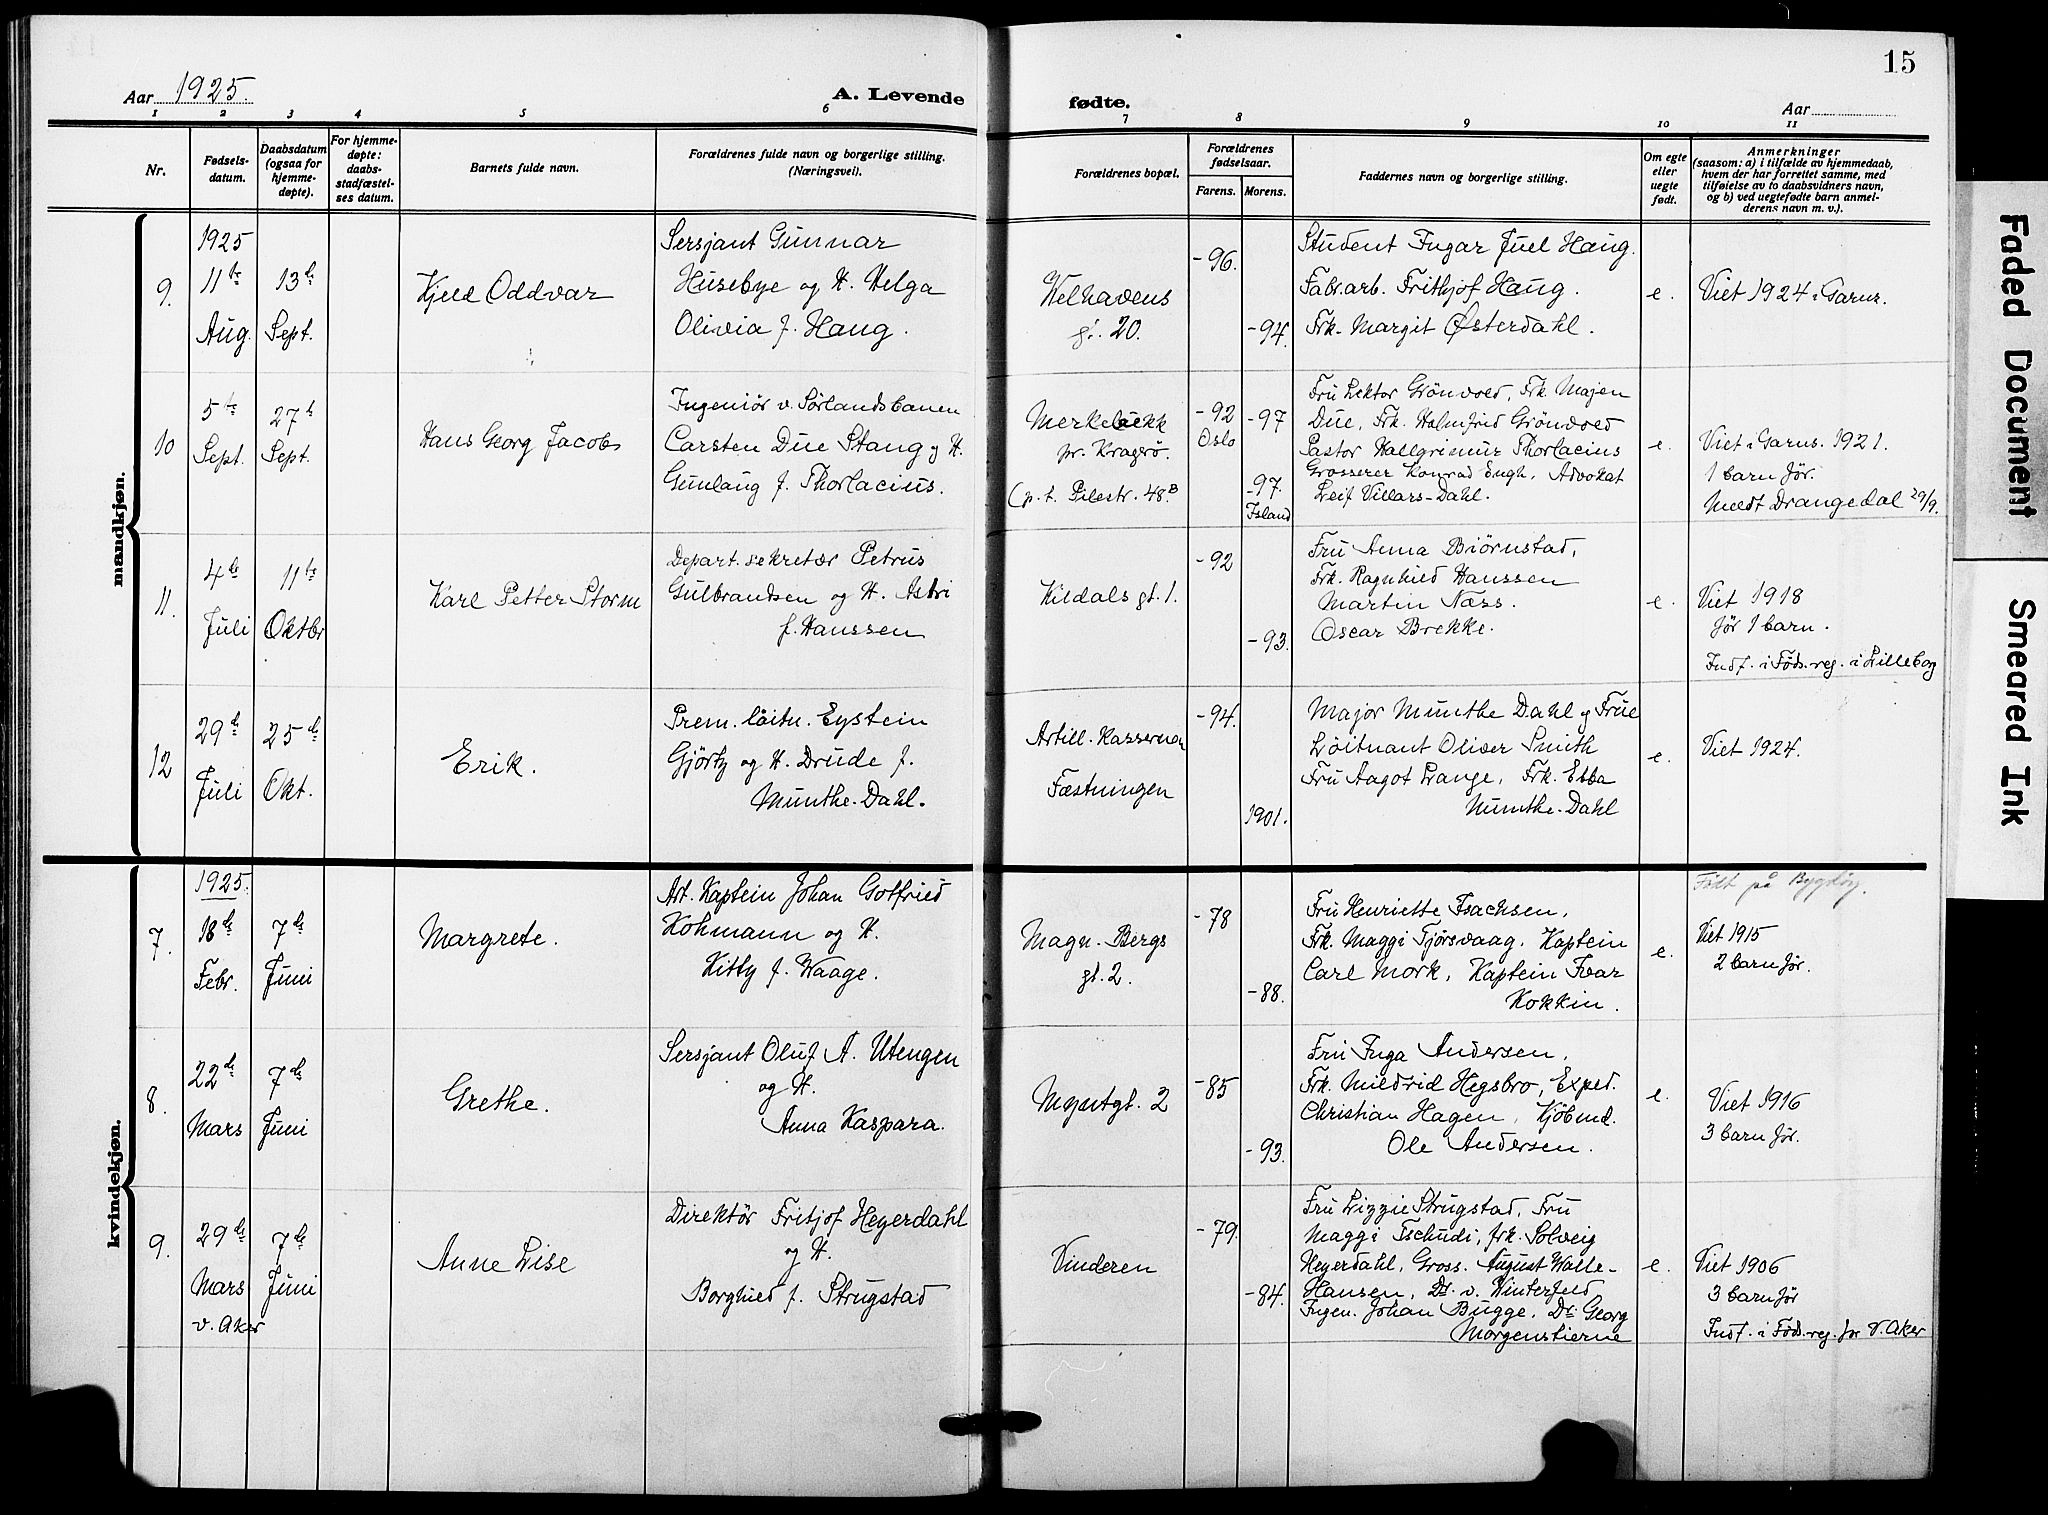 15
Aar 1925.
A. Levende fødte.
Aar
1 2 3 4 5 6 7 8 9 10 11
Nr.
Fødsels-
datum.
Daabsdatum
(ogsaa for
hjemme-
døpte).
For hjemme-
døpte:
daabs-
stadfæstel-
ses datum.
Barnets fulde navn.
Forældrenes fulde navn og borgerlige stilling.
(Næringsvei).
Forældrenes bopæl.
Forældrenes
fødselsaar.
Farens. Morens.
Faddernes navn og borgerlige stilling.
Om egte
eller
uegte
født.
Anmerkninger
(saasom: a) i tilfælde av hjemmedaab,
hvem der har forrettet samme, med
tilføielse av to daabsvidners navn,
og b) ved uegtefødte barn anmel-
derens navn m. v.).
mandkjøn.
9.
1925
11te
Aug.
13de
Sept.
Kjeld Oddvar
Sersjant Gunnar
Husebye og H. Helga
Olivia f. Haug.
Welhavens
gt. 20.
-96.
-94.
Student Ingar Juel Haug.
Fabr.arb. Frithjof Haug.
Frk. Margit Østerdahl.
e.
Viet 1924 i Garns.
10
5te
Sept.
27de
Sept.
Hans Georg Jacob
Ingeniör v. Sörlandsbanen
Carsten Due Stang og H.
Gunlaug f. Thorlacius.
Merkebekk
pr. Kragerø.
(p. t. Pilestr. 48.B
-92
Oslo
-97
-97.
Island
Fru Lektor Grönvold, Frk. Majen
Due, Frk. Halmfrid Grönvold
Pastor Hallgrimur Thorlacius
Grosserer Konrad Engh, Advokat
Leif Villars-Dahl.
e.
Viet i Garns. 1921.
1 barn før.
Meldt Drangedal 29/9.
11.
4de
Juli
11te
Oktbr
Karl Petter Storm
Depart. sekretær Petrus
Gulbrandsen og H. Astri
f. Hanssen
Kildals gt. 1.
-92
-93.
Fru Anna Biörnstad,
Frk. Ragnhild Hanssen
Martin Næss.
Oscar Brekke.
e.
Viet 1918
før 1 barn.
Indf. i Føds.reg. i Lilleborg
12
29de
Juli
25de
Okt.
Erik.
Prem. löitn. Eystein
Gjörtz og H. Drude f.
Munthe-Dahl.
Artill. Kassernen
Fæstningen
-94.
1901.
Major Munthe Dahl og Frue
Löitnant Oliver Smith
Fru Aagot Lange, Frk. Ebba
Munthe-Dahl
e.
Viet 1924.
kvindekjøn.
7.
1925.
18de
Febr.
7de
Juni
Margrete.
Art. Kaptein Johan Gotfried
Kohmann og H.
Kitty f. Waage.
Magn. Bergs
gt. 2.
-78
-88.
Fru Henriette Isachsen,
Frk. Maggi Tjörsvaag, Kaptein
Carl Mork, Kaptein Ivar
Kokkin.
e.
Født på Bygdöy.
Viet 1915
2 barn før.
8.
22de
Mars
7de
Juni
Grethe.
Sersjant Oluf A. Utengen
og H.
Anna Kaspara.
Myntgt. 2
-85
-93.
Fru Inga Andersen,
Frk. Mildrid Hegsbro, Exped.
Christian Hagen, Kjöbmd.
Ole Andersen.
e.
Viet 1916
3 barn før.
9.
29de
Mars
v. Aker
7de
Juni
Anne Lise
Direktör Fritjof Heyerdahl
og H.
Borghild f. Strugstad
Vinderen
-79.
-84.
Fru Lizzie Strugstad, Fru
Maggi Tschudi, frk. Solveig
Heyerdahl, Gross. August Walle-
Hansen, Dr. v. Winterfeld
Ingen. Johan Bugge, Dr. Georg
Morgenstierne
e.
Viet 1906
3 barn før
Indf. i Føds.reg. for V. Aker
Faded Document
Smeared Ink